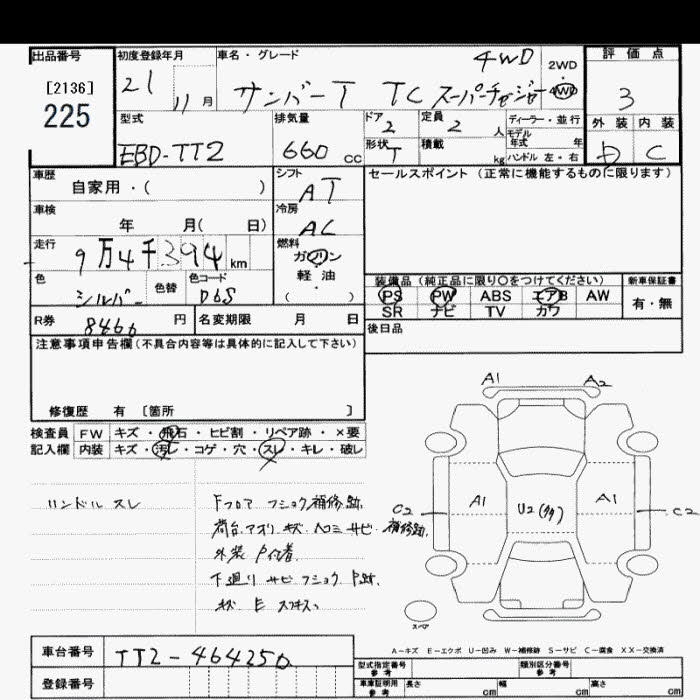 出品番号 初度登録年月 車名・グレード 評価点
[2136] 225
21 11月 サンバーT TC スーパーチャージャー 4WD 2WD 4WD
3
型式 排気量 ドア 定員 ディーラー・並行 外装 内装
EBD-TT2 660cc 2 2人 モデル年式 年 D C
形状 T 積載 kg ハンドル 左・右
車歴 シフト セールスポイント (正常に機能するものに限ります)
自家用・( ) AT
車検 冷房
年 月( 日) AC
走行 燃料
9万4千394km ガソリン
色 色替 色コード 軽油 装備品 (純品に限り○をつけてください) 新車保証書
シルバー D6S ( ) PS PW ABS エアB AW 有・無
SR ナビ TV カワ
R券 8460円 名変期限 月 日 後日品
注意事項申告欄(不具合内容等は具体的に記入して下さい)
修復歴 有 [箇所 ]
検査員 FW キズ・飛石・ヒビ割・リペア跡・×要
記入欄 内装 キズ・汚レ・コゲ・穴・スレ・キレ・破レ
A1 A2
ハンドル スレ
Fフロア フショク補修跡
荷台アオリ キズ ヘコミ サビ 補修跡
外装 P付着
下廻り サビ フショク P跡
C2 A1 U2(多) A1 C2
スペア
A-キズ E-エクボ U-凹み W-補修跡 S-サビ C-腐食 XX-交換済
車台番号 TT2-464250
登録番号
型式指定番号 参考 類別区分番号 参考
車庫証明用 参考 長さ cm 幅 cm 高さ cm